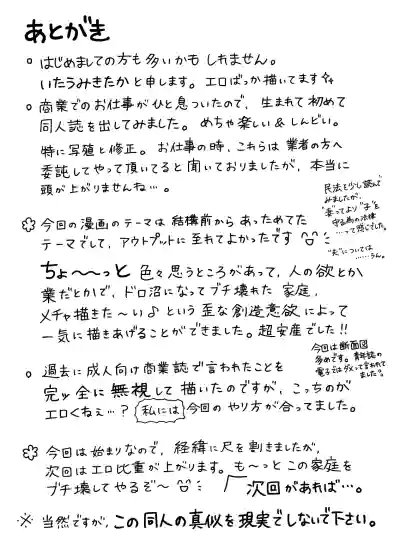 あとがき
○ はじめましての方も多いかもしれません。
いたうみきたかと申します。エロばっか描いてます
○ 商業でのお仕事がひと息ついたので、生まれて初めて
同人誌を出してみました。めちゃ楽しい&しんどい。
特に写植と修正。お仕事の時、これらは業者の方へ
委託してやって頂いてると聞いておりましたが、本当に
頭が上がりませんね…。
民法を少し読んで
みましたが、
"妻"ってより"子"を
守る為の法律
…って感じでした。
"夫"については
……うん。
今回の漫画のテーマは結構前からあっためてた
テーマでして、アウトプットに至れてよかったです
ちょ〜〜っと色々思うところがあって、人の欲とか
業だとかで、ドロ沼になってブチ壊れた家庭、
メチャ描きた〜い♪という歪な創造意欲によって
一気に描きあげることができました。超安産でした!!
今回は断面図
多めです。青年誌の
電子ではダメって言われて
ました。
○ 過去に成人向け商業誌で言われたことを
完ッ全に無視して描いたのですが、こっちのが
エロくねぇ…?私には今回のやり方が合ってました。
今回は始まりなので、経緯に尺を割きましたが、
次回はエロ比重が上がります。も〜っとこの家庭を
ブチ壊してやるぞ〜
次回があれば…。
※ 当然ですが、この同人の真似を現実でしないで下さい。